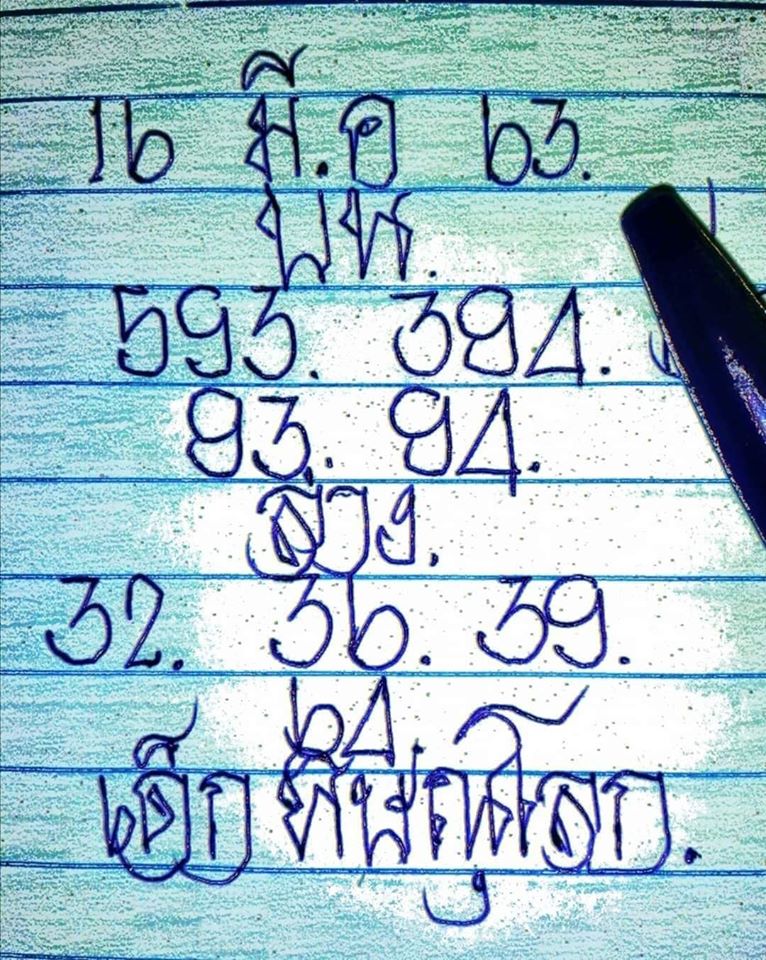 16 มี.ค 63.
บน.
593. 394.
93. 94.
ล่าง.
32. 36. 39.
64.
เด็ก พิษณุโลก.